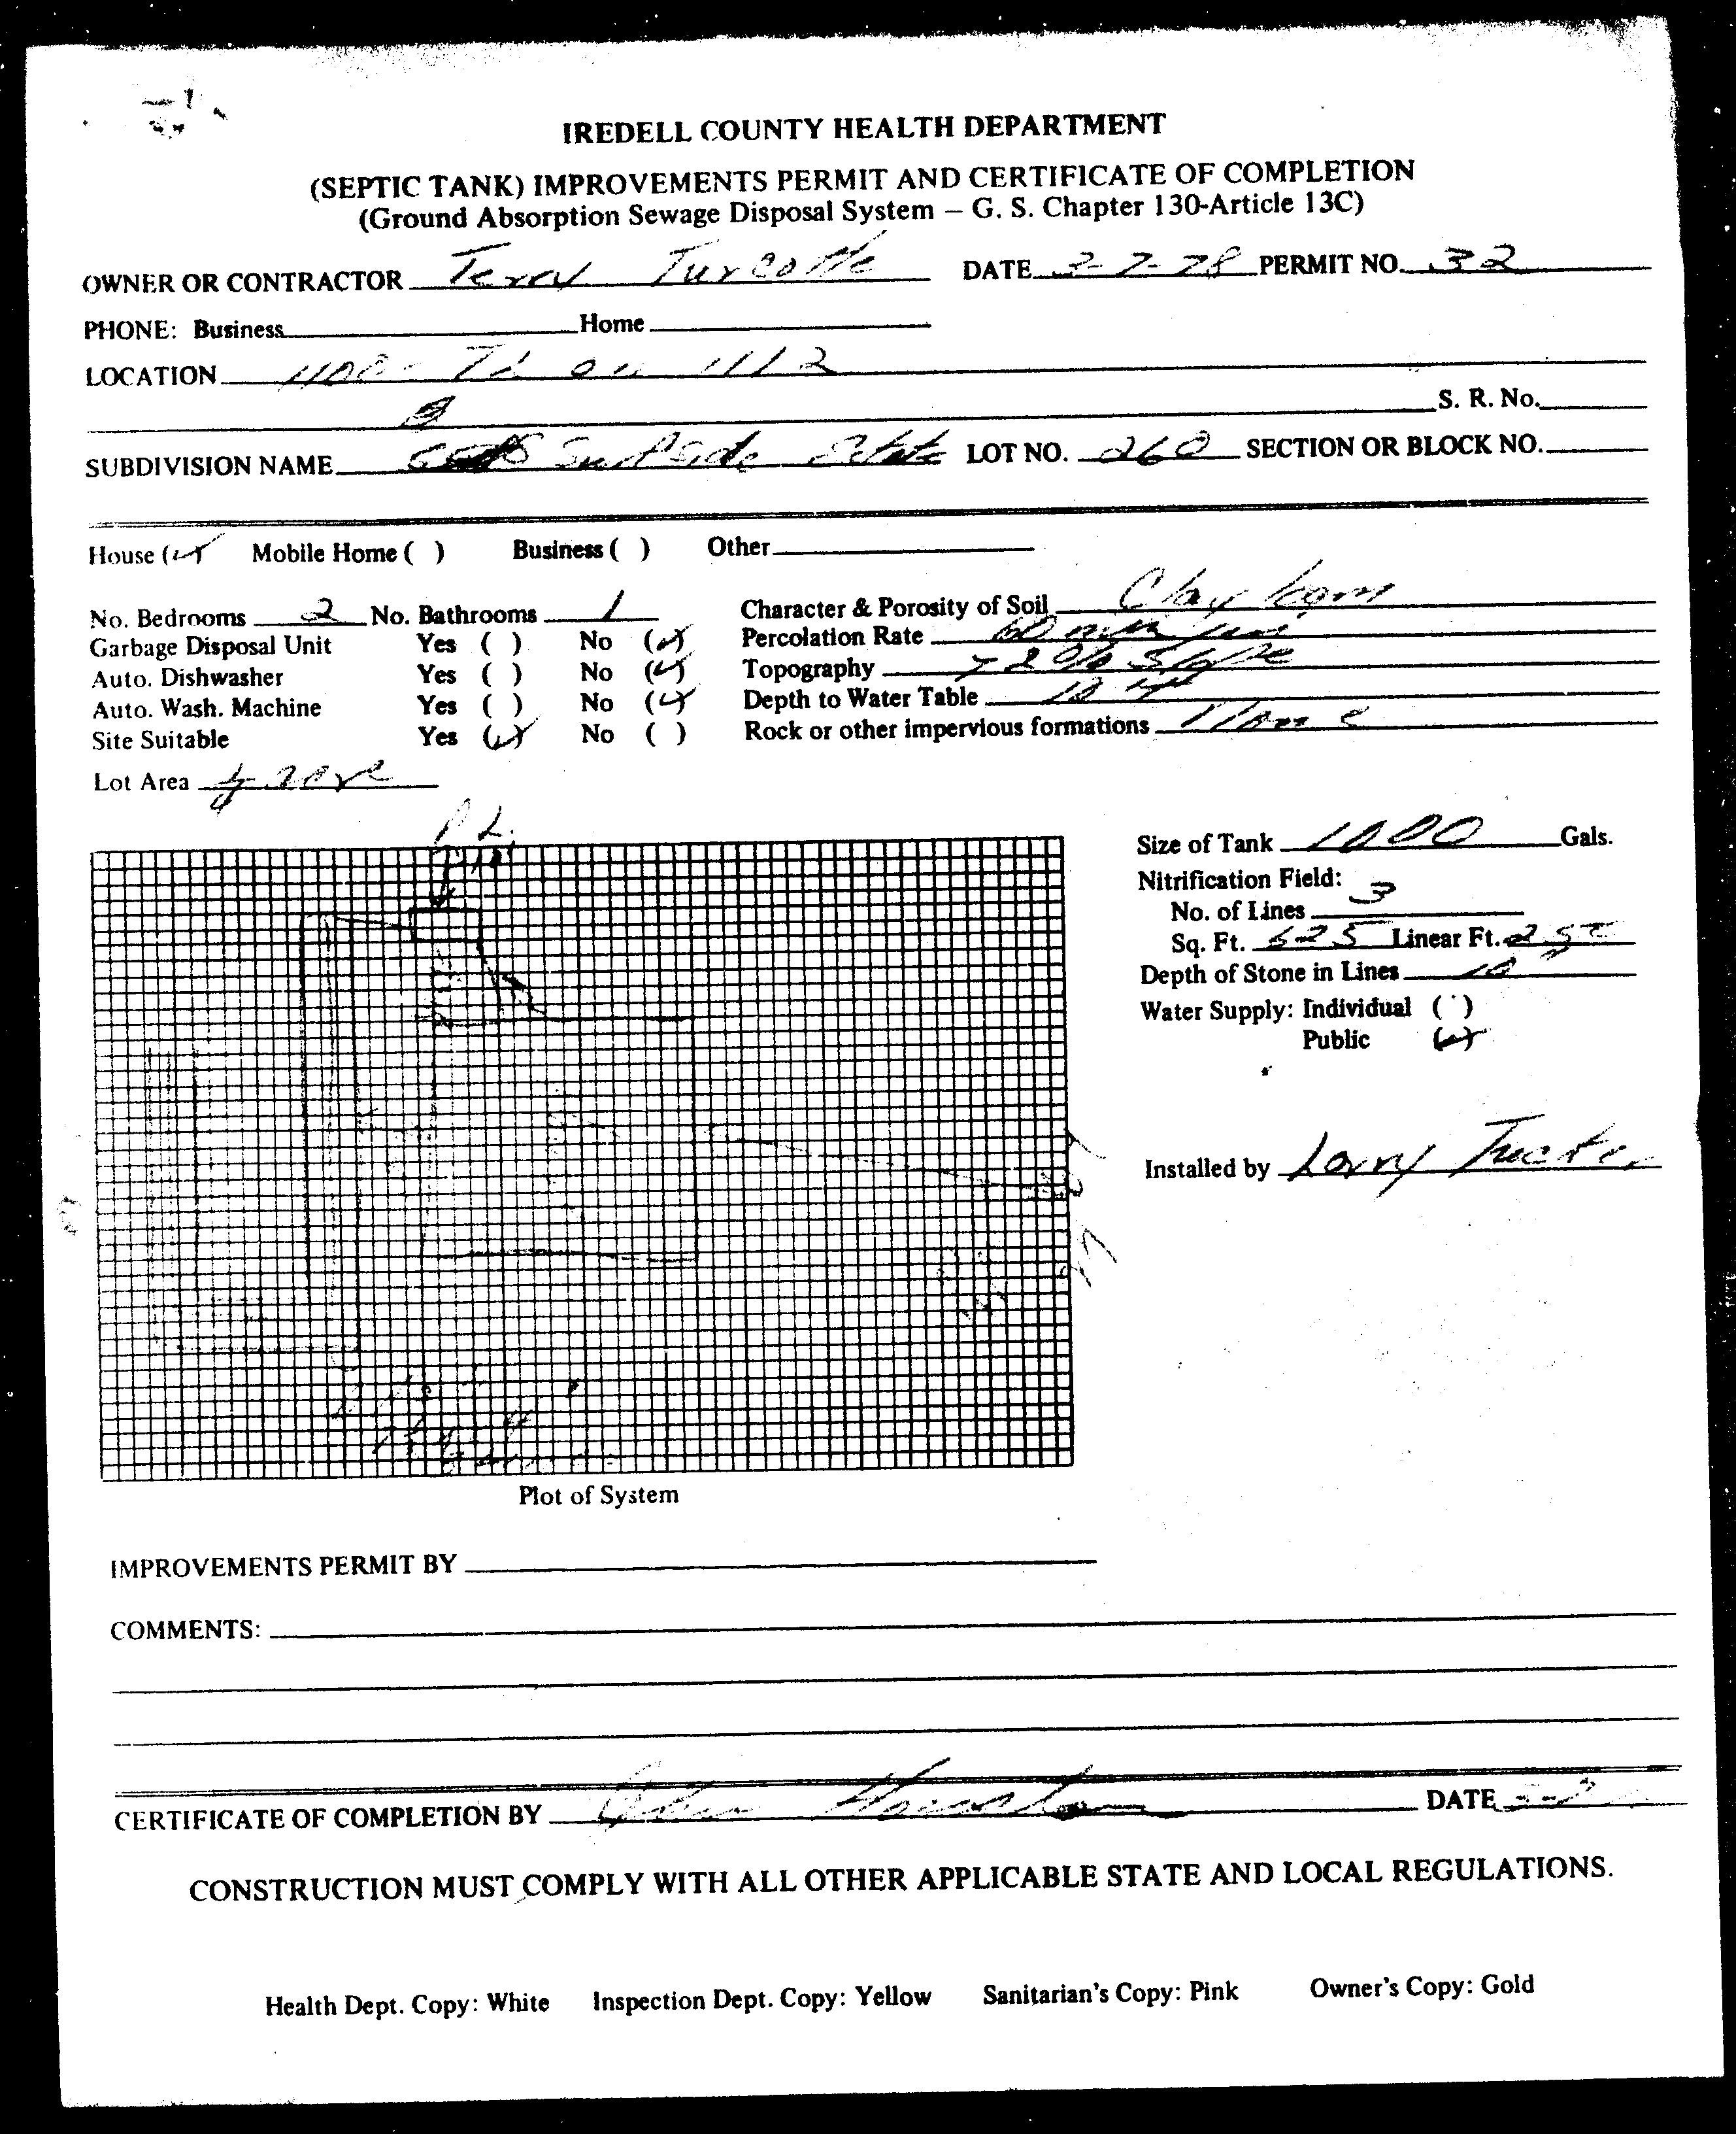 IREDELL COUNTY HEALTH DEPARTMENT
(SEPTIC TANK) IMPROVEMENTS PERMIT AND CERTIFICATE OF COMPLETION
(Ground Absorption Sewage Disposal System – G. S. Chapter 130-Article 13C)
OWNER OR CONTRACTOR Terry Turcotte DATE 2-7-78 PERMIT NO. 32
PHONE: Business Home
LOCATION 1100- on 1112
S. R. No.
SUBDIVISION NAME LOT NO. 260 SECTION OR BLOCK NO.
House (✓) Mobile Home ( ) Business ( ) Other
No. Bedrooms 2 No. Bathrooms 1 Character & Porosity of Soil Clay loam
Garbage Disposal Unit Yes ( ) No (✓) Percolation Rate 60
Auto. Dishwasher Yes ( ) No (✓) Topography 78% Slope
Auto. Wash. Machine Yes ( ) No (✓) Depth to Water Table
Site Suitable Yes (✓) No ( ) Rock or other impervious formations None
Lot Area
P.L.
Size of Tank 1000 Gals.
Nitrification Field:
No. of Lines 3
Sq. Ft. 625 Linear Ft.
Depth of Stone in Lines 10
Water Supply: Individual ( )
Public (✓)
Installed by Larry Tucker
Plot of System
IMPROVEMENTS PERMIT BY
COMMENTS:
CERTIFICATE OF COMPLETION BY DATE
CONSTRUCTION MUST COMPLY WITH ALL OTHER APPLICABLE STATE AND LOCAL REGULATIONS.
Health Dept. Copy: White Inspection Dept. Copy: Yellow Sanitarian's Copy: Pink Owner's Copy: Gold